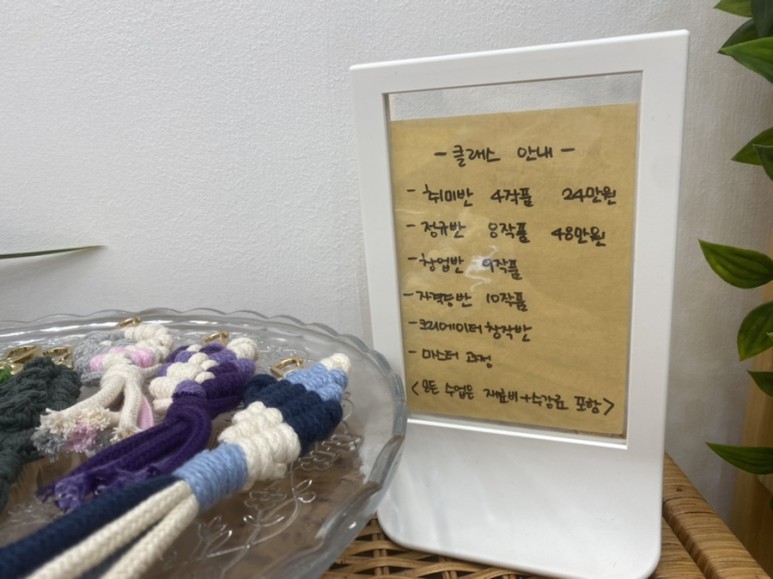 - 클래스 안내 -
- 취미반 4작품 24만원
- 정규반 8작품 48만원
- 창업반 9작품
- 자격증반 10작품
- 크리에이터 창작반
- 마스터 과정
<모든 수업은 재료비+수강료 포함>